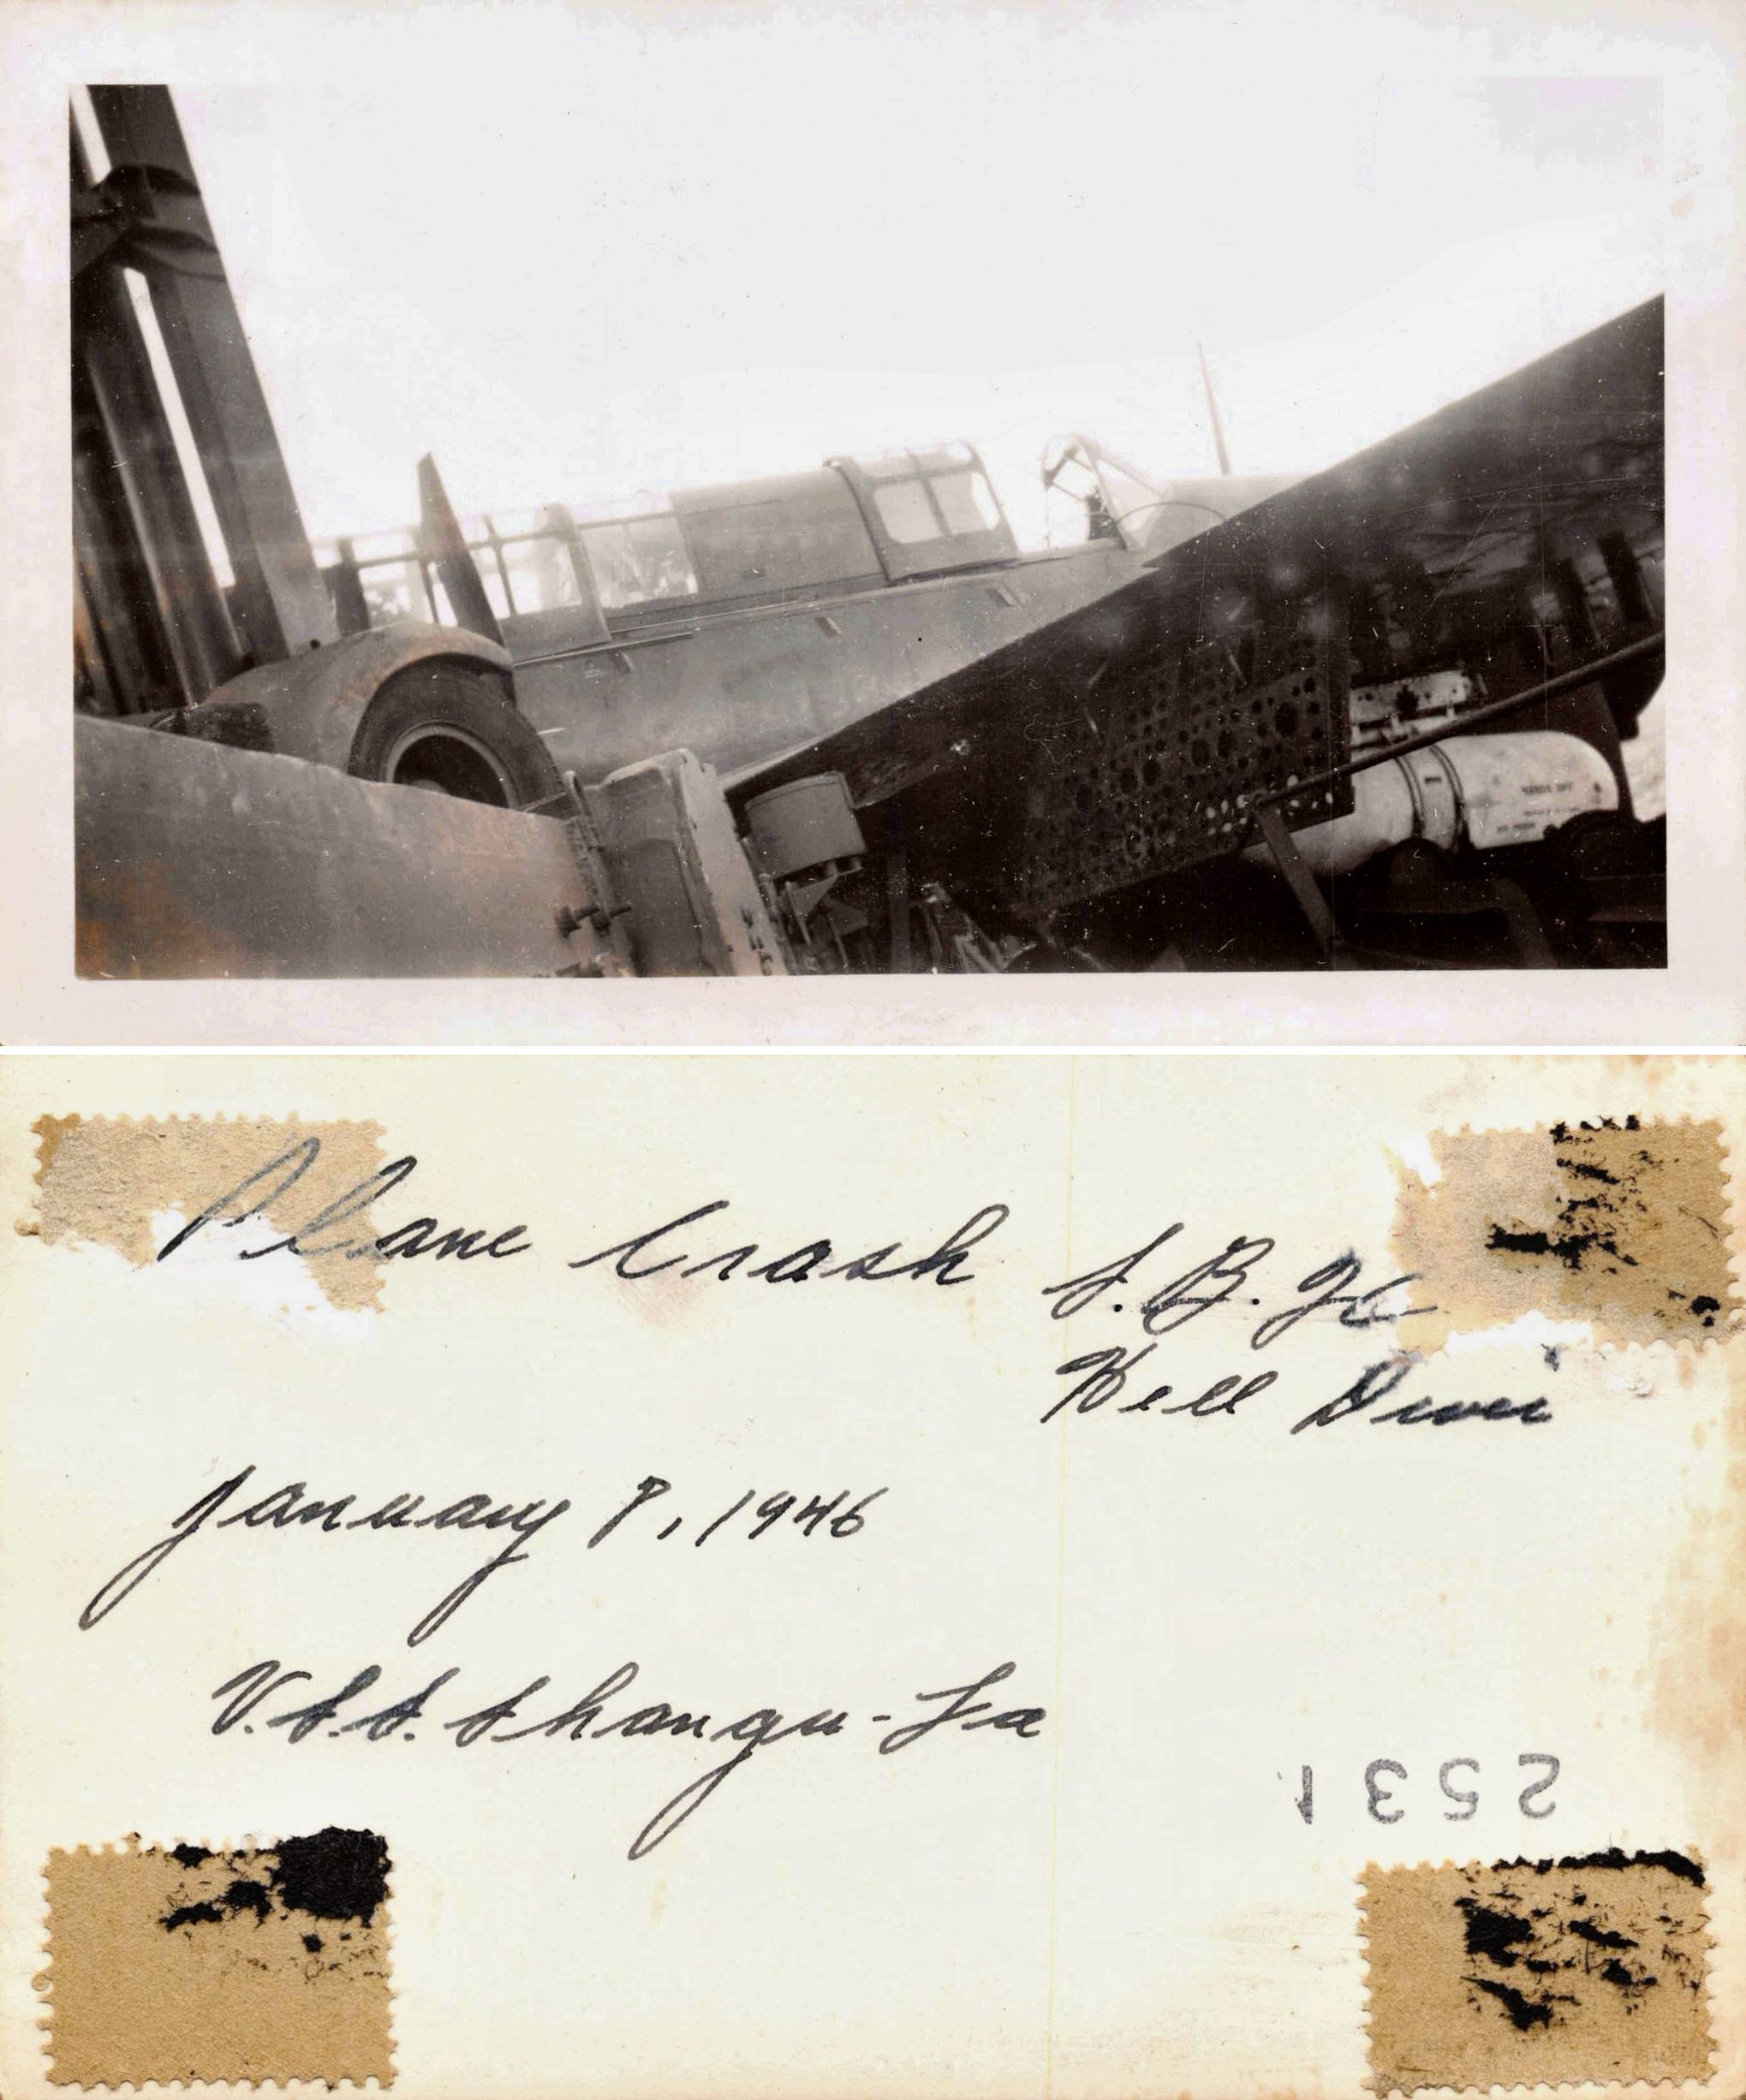 Plane Crash S.B.2C
Hell Diver
January 8, 1946
U.S.S. Shangri-La
2531